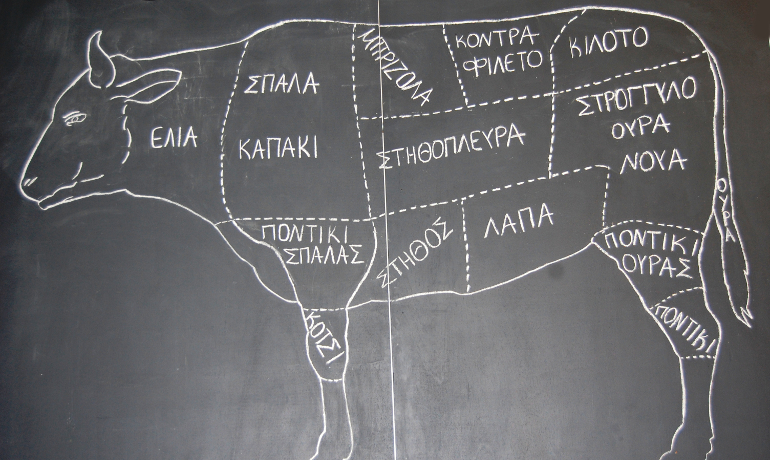 ΕΛΙΑ
ΣΠΑΛΑ
ΚΑΠΑΚΙ
ΜΠΡΙΖΟΛΑ
ΚΟΝΤΡΑ
ΦΙΛΕΤΟ
ΚΙΛΟΤΟ
ΣΤΗΘΟΠΛΕΥΡΑ
ΣΤΡΟΓΓΥΛΟ
ΟΥΡΑ
ΝΟΥΑ
ΟΥΡΑ
ΠΟΝΤΙΚΙ
ΣΠΑΛΑΣ
ΣΤΗΘΟΣ
ΛΑΠΑ
ΠΟΝΤΙΚΙ
ΟΥΡΑΣ
ΚΟΤΣΙ
ΠΟΝΤΙΚΙ